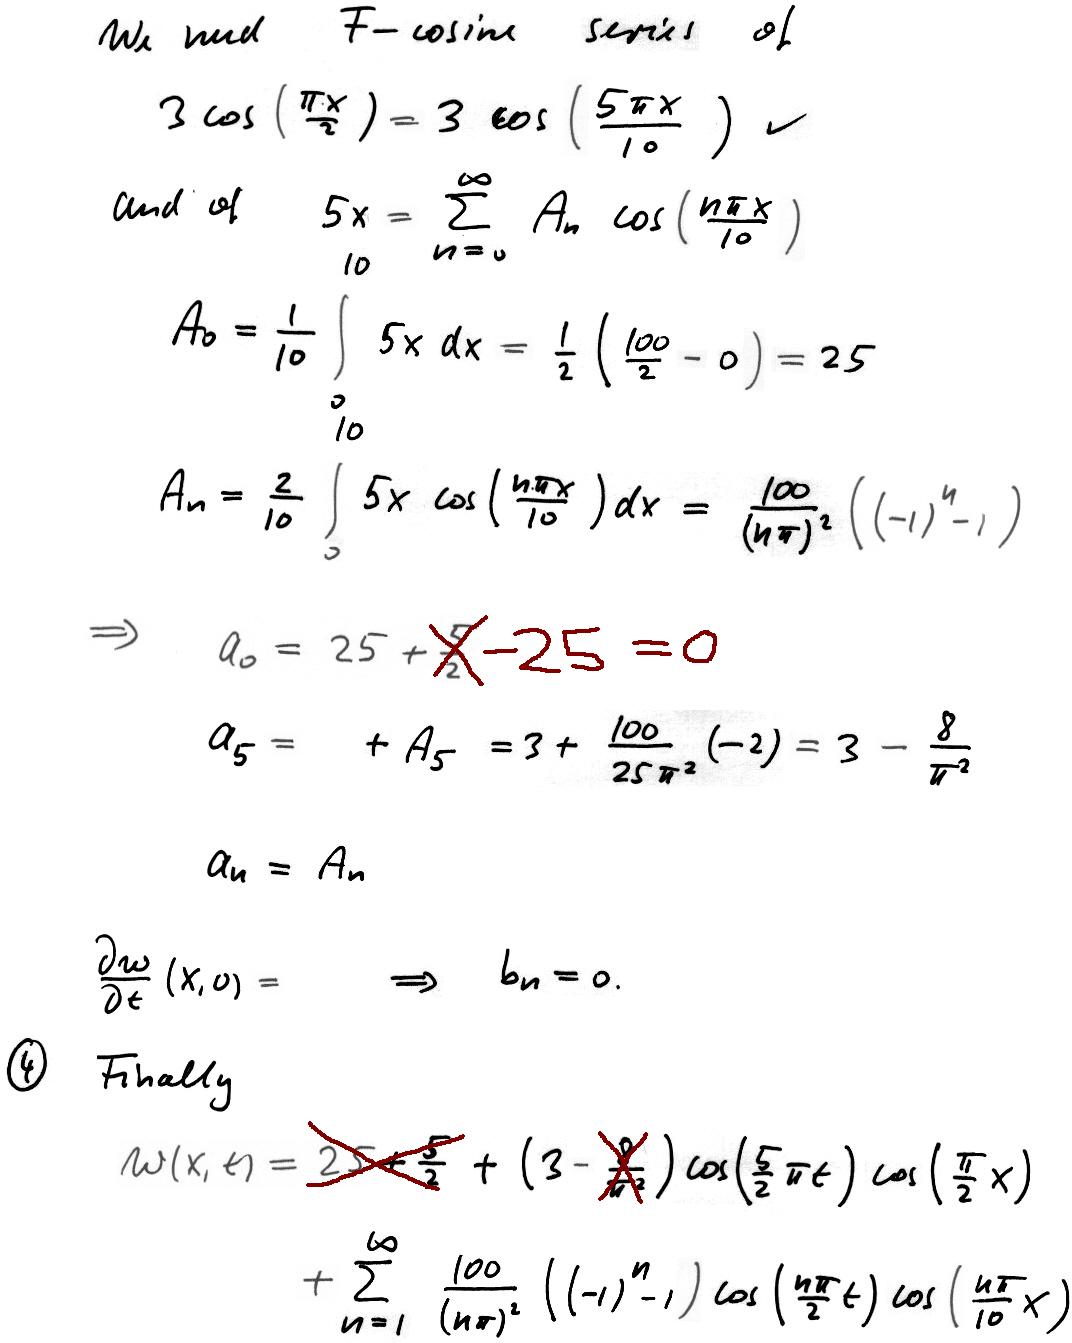 We need F-cosine series of
3 cos(πx/2) = 3 cos(5πx/10) ✓
and of 5x = ∑_{n=0}^{∞} A_n cos(nπx/10)
A_0 = 1/10 ∫_0^{10} 5x dx = 1/2 (100/2 - 0) = 25
A_n = 2/10 ∫_0^{10} 5x cos(nπx/10) dx = 100/(nπ)² ((-1)^n - 1)
⇒ a_0 = 25 + 5/2 - 25 = 0
a_5 = + A_5 = 3 + 100/25π² (-2) = 3 - 8/π²
a_n = A_n
∂w/∂t (x,0) = ⇒ b_n = 0.
④ Finally
w(x,t) = 25 + 5/2 + (3 - 8/π²) cos(5/2 πt) cos(π/2 x)
+ ∑_{n=1}^{∞} 100/(nπ)² ((-1)^n - 1) cos(nπ/2 t) cos(nπ/10 x)